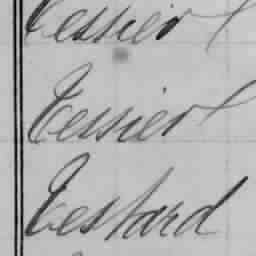 Tessier
Tessier
Testard